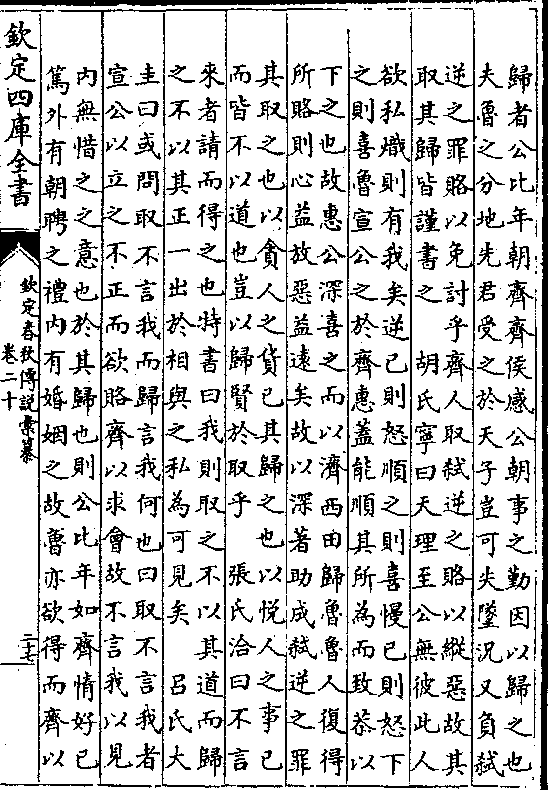 歸者公比年朝齊齊侯感公朝事之勤因以歸之也
夫魯之分地先君受之於天子豈可失墜況又負弑
逆之罪賂以免討乎齊人取弑逆之賂以縱惡故其
取其歸皆謹書之　胡氏寧曰天理至公無彼此人
欲私熾則有我矣逆已則怒順之則喜慢已則怒下
之則喜魯宣公之於齊惠蓋能順其所為而致恭以
下之也故惠公深喜之而以濟西田歸魯魯人復得
所賂則心益放惡益遠矣故以深著助成弑逆之罪
其取之也以貪人之貨已其歸之也以悅人之事已
而皆不以道也豈以歸賢於取乎　張氏洽曰不言
來者請而得之也特書曰我則取之不以其道而歸
之不以其正一出於相與之私為可見矣　呂氏大
圭曰或問取不言我而歸言我何也曰取不言我者
宣公以立之不正而欲賂齊以求會故不言我以見
內無惜之之意也於其歸也則公比年如齊情好已
篤外有朝聘之禮內有婚姻之故魯亦欲得而齊以
欽定四庫全書
欽定春秋傳說彙纂
卷二十
二七